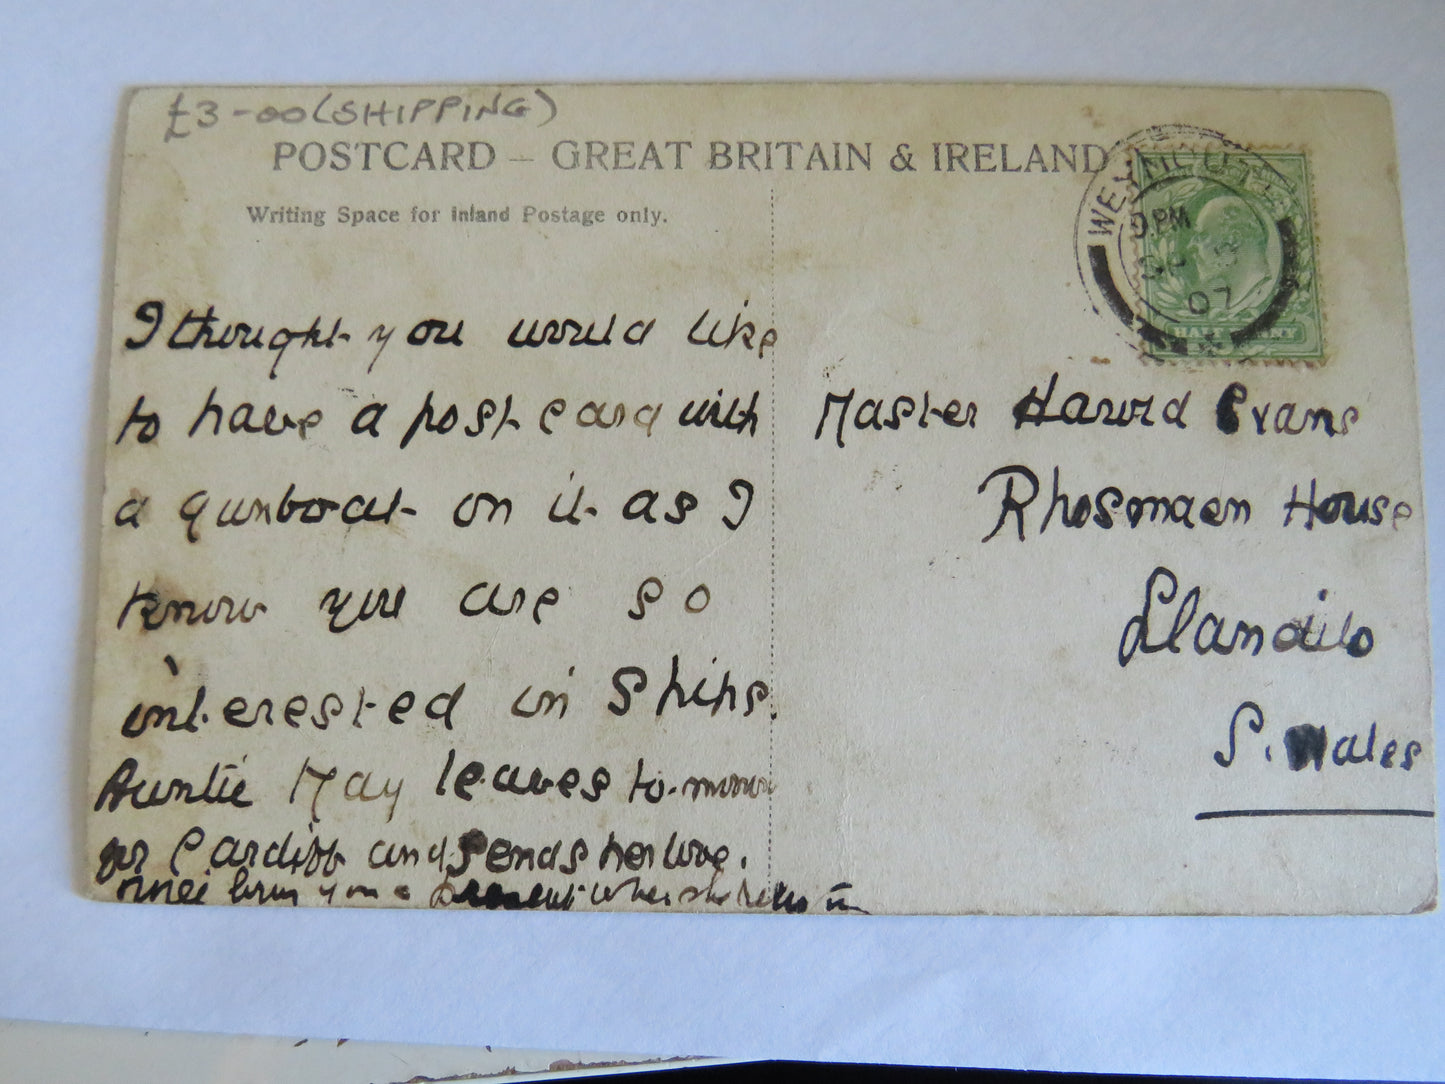 £3-00 (SHIPPING)
POSTCARD – GREAT BRITAIN & IRELAND
Writing Space for Inland Postage only.
WEYMOUTH
9.PM
07
HALF PENNY
I thought you would like
to have a post card with
a gunboat on it as I
know you are so
interested in Ships.
Auntie May leaves to-morrow
for Cardiff and sends her love.
bring you a present when she
Master Harold Evans
Rhosmaen House
Llandilo
S. Wales